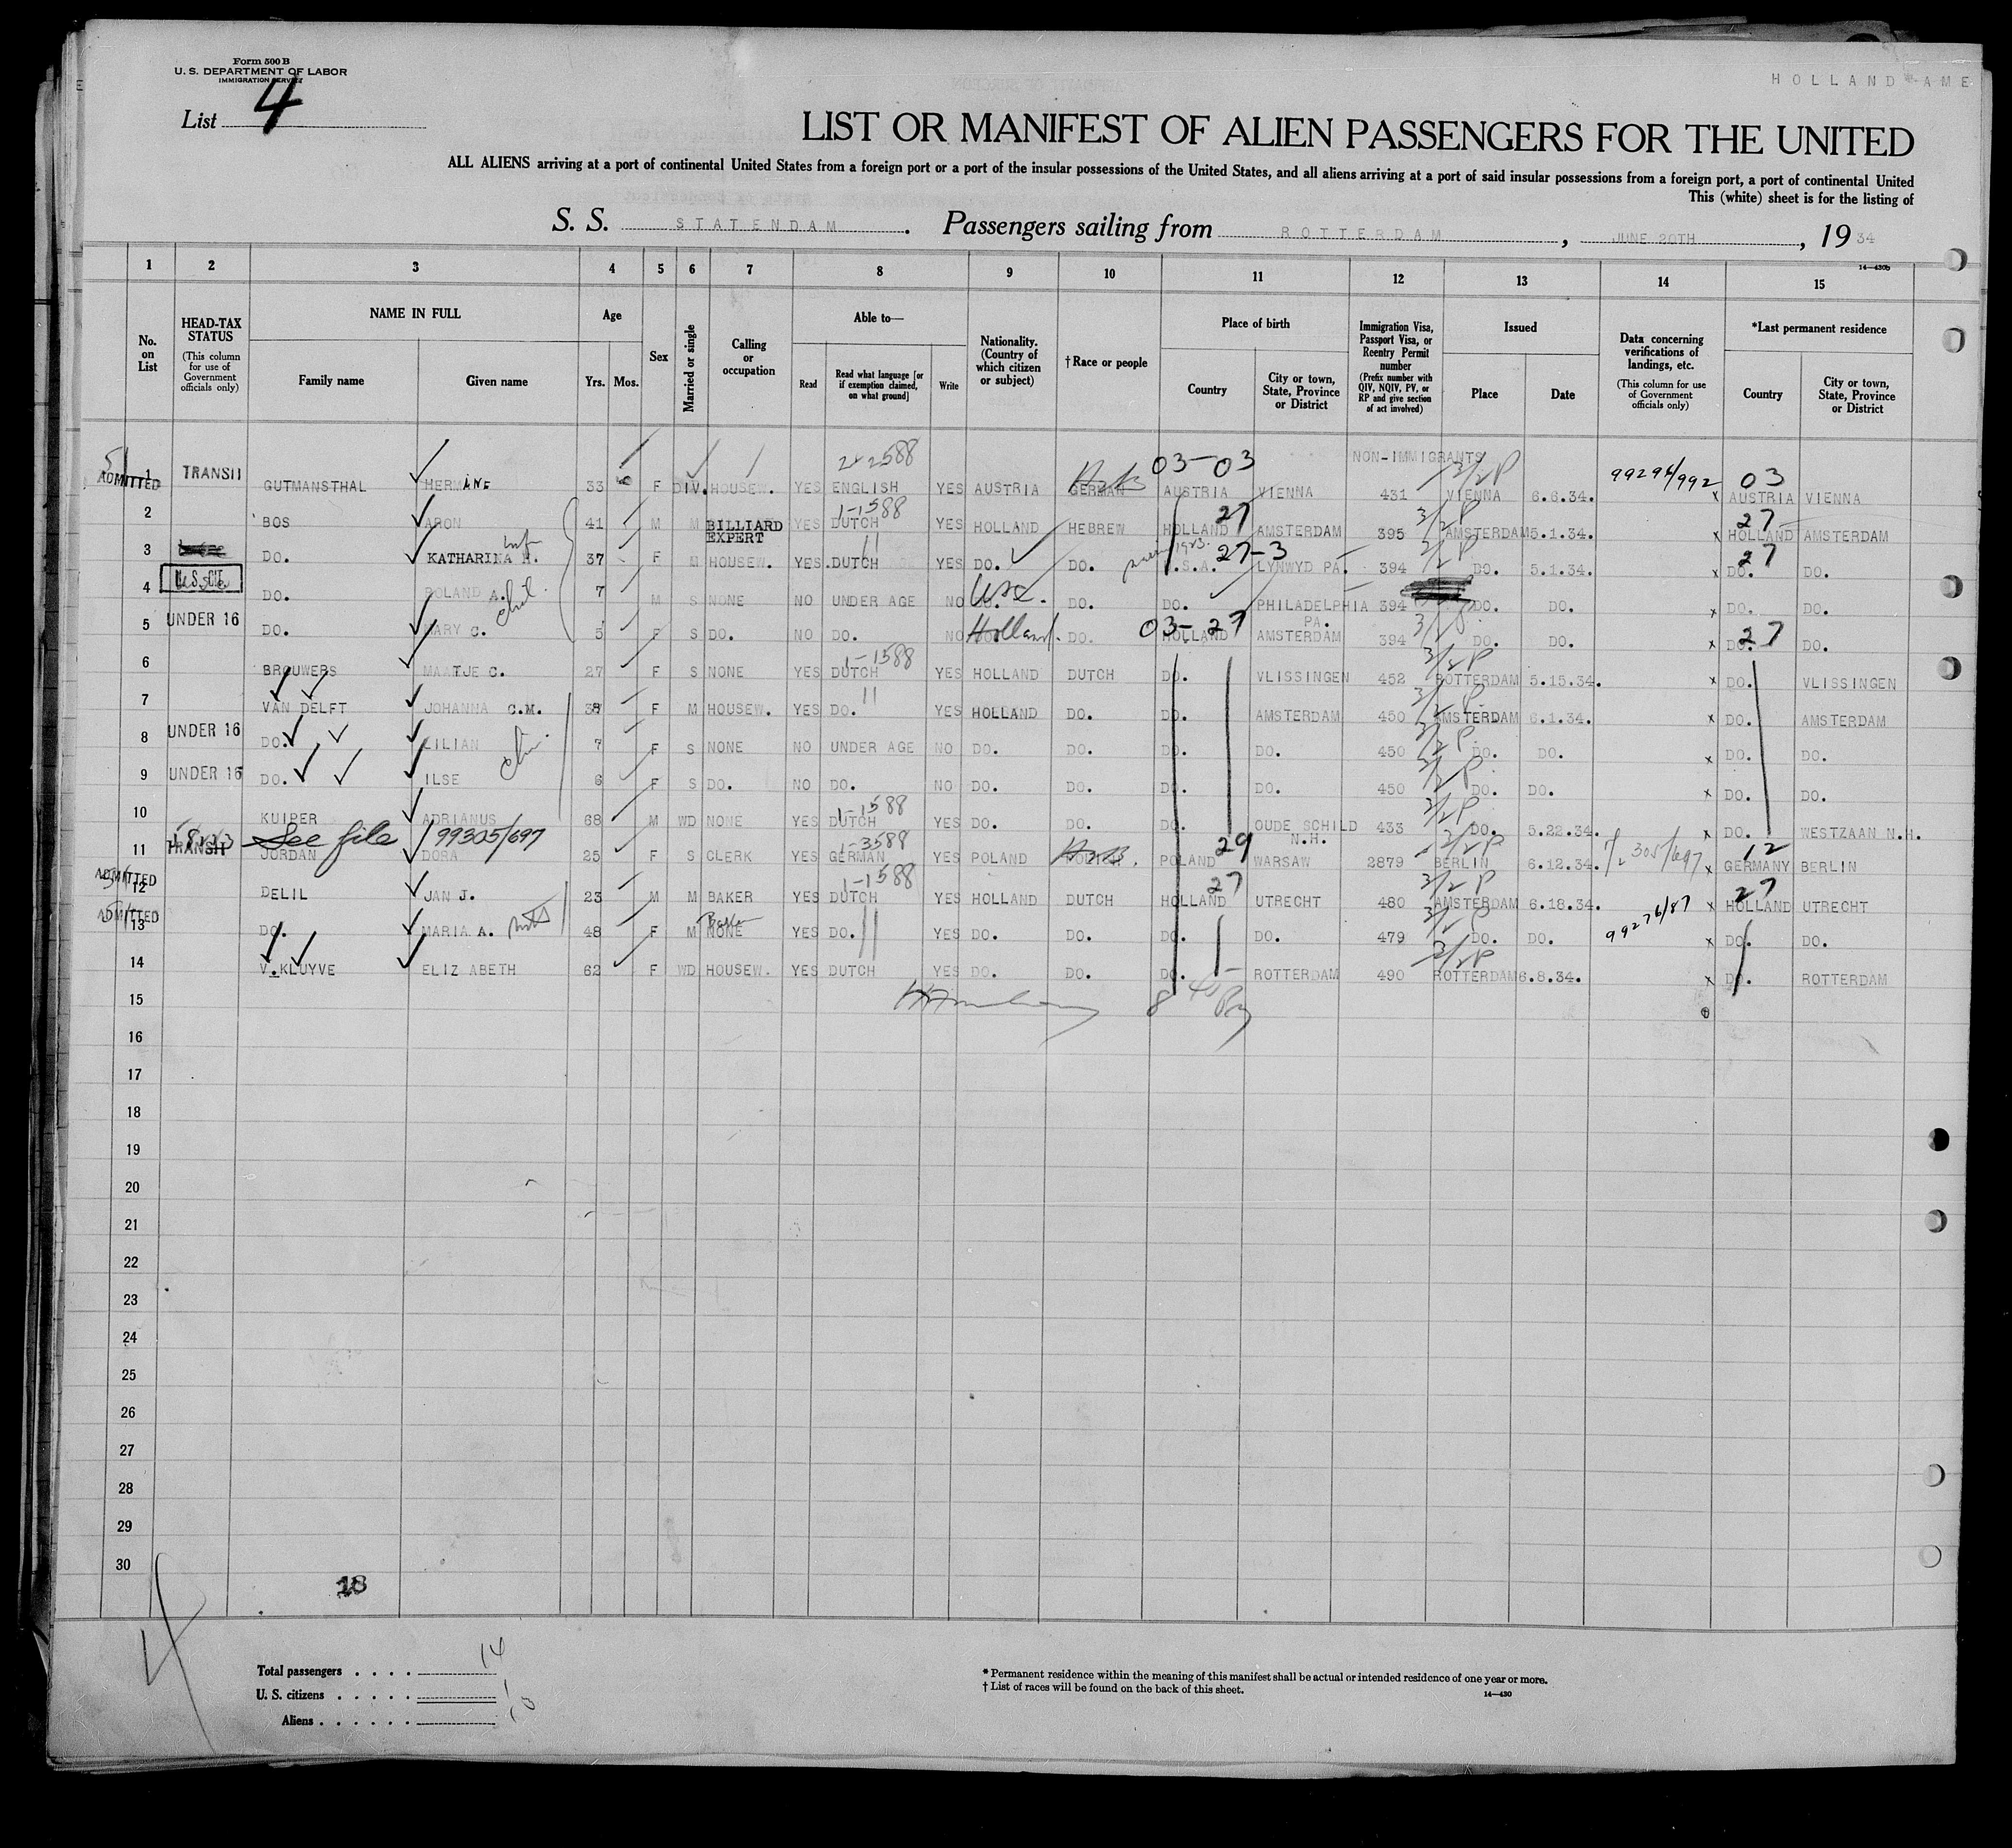 Form 500 B
U. S. DEPARTMENT OF LABOR
IMMIGRATION SERVICE
HOLLAND-AME
List 4
LIST OR MANIFEST OF ALIEN PASSENGERS FOR THE UNITED
ALL ALIENS arriving at a port of continental United States from a foreign port or a port of the insular possessions of the United States, and all aliens arriving at a port of said insular possessions from a foreign port, a port of continental United
This (white) sheet is for the listing of
S. S. STATENDAM. Passengers sailing from ROTTERDAM, JUNE 20TH, 1934
14—430b
1 2 3 4 5 6 7 8 9 10 11 12 13 14 15
No. on List
HEAD-TAX STATUS (This column for use of Government officials only)
NAME IN FULL
Family name Given name
Age
Yrs. Mos.
Sex
Married or single
Calling or occupation
Able to—
Read Read what language [or if exemption claimed, on what ground] Write
Nationality. (Country of which citizen or subject)
†Race or people
Place of birth
Country City or town, State, Province or District
Immigration Visa, Passport Visa, or Reentry Permit number (Prefix number with QIV, NQIV, PV, or RP and give section of act involved)
Issued
Place Date
Data concerning verifications of landings, etc. (This column for use of Government officials only)
*Last permanent residence
Country City or town, State, Province or District
2-2588 03-03 NON-IMMIGRANTS 3/2P 99294/992 03
ADMITTED 1 TRANSIT GUTMANSTHAL HERMINE 33 F DIV. HOUSEW. YES ENGLISH YES AUSTRIA GERMAN AUSTRIA VIENNA 431 VIENNA 6.6.34. x AUSTRIA VIENNA
1-1588 27 3/2P 27
2 BOS ARON 41 M M BILLIARD EXPERT YES DUTCH YES HOLLAND HEBREW HOLLAND AMSTERDAM 395 AMSTERDAM 5.1.34. x HOLLAND AMSTERDAM
1923. 27-3 3/2P 27
3 DO. KATHARINA H. 37 F M HOUSEW. YES DUTCH YES DO. DO. U.S.A. LYNWYD PA. 394 DO. 5.1.34. x DO. DO.
4 U.S. CIT. DO. ROLAND A. 7 M S NONE NO UNDER AGE NO DO. DO. DO. PHILADELPHIA PA. 394 DO. DO. x DO. DO.
03-27 3/2P 27
5 UNDER 16 DO. MARY C. 5 F S DO. NO DO. NO Holland. DO. HOLLAND AMSTERDAM 394 DO. DO. x DO. DO.
1-1588 3/2P
6 BROUWERS MAATJE C. 27 F S NONE YES DUTCH YES HOLLAND DUTCH DO. VLISSINGEN 452 ROTTERDAM 5.15.34. x DO. VLISSINGEN
11 3/2P
7 VAN DELFT JOHANNA C.M. 38 F M HOUSEW. YES DO. YES HOLLAND DO. DO. AMSTERDAM 450 AMSTERDAM 6.1.34. x DO. AMSTERDAM
3/2P
8 UNDER 16 DO. LILIAN 7 F S NONE NO UNDER AGE NO DO. DO. DO. DO. 450 DO. DO. x DO. DO.
3/2P
9 UNDER 16 DO. ILSE 6 F S DO. NO DO. NO DO. DO. DO. DO. 450 DO. DO. x DO. DO.
1-1588 3/2P
10 KUIPER ADRIANUS 68 M WD NONE YES DUTCH YES DO. DO. DO. OUDE SCHILD N.H. 433 DO. 5.22.34. x DO. WESTZAAN N.H.
See file 99305/697 1-3588 29 3/2P 305/697 12
11 TRANSIT JORDAN DORA 25 F S CLERK YES GERMAN YES POLAND POLAND WARSAW 2879 BERLIN 6.12.34. x GERMANY BERLIN
1-1588 27 3/2P 27
ADMITTED 12 DELIL JAN J. 23 M M BAKER YES DUTCH YES HOLLAND DUTCH HOLLAND UTRECHT 480 AMSTERDAM 6.18.34. x HOLLAND UTRECHT
11 3/2P 99276/87
ADMITTED 13 DO. MARIA A. 48 F M NONE YES DO. YES DO. DO. DO. DO. 479 DO. DO. x DO. DO.
3/2P
14 V. KLUYVE ELIZABETH 62 F WD HOUSEW. YES DUTCH YES DO. DO. DO. ROTTERDAM 490 ROTTERDAM 6.8.34. x DO. ROTTERDAM
15
16
17
18
19
20
21
22
23
24
25
26
27
28
29
30
18
4
Total passengers . . . . 14
U. S. citizens . . . . . 1
Aliens . . . . . .
* Permanent residence within the meaning of this manifest shall be actual or intended residence of one year or more.
† List of races will be found on the back of this sheet.
14—430